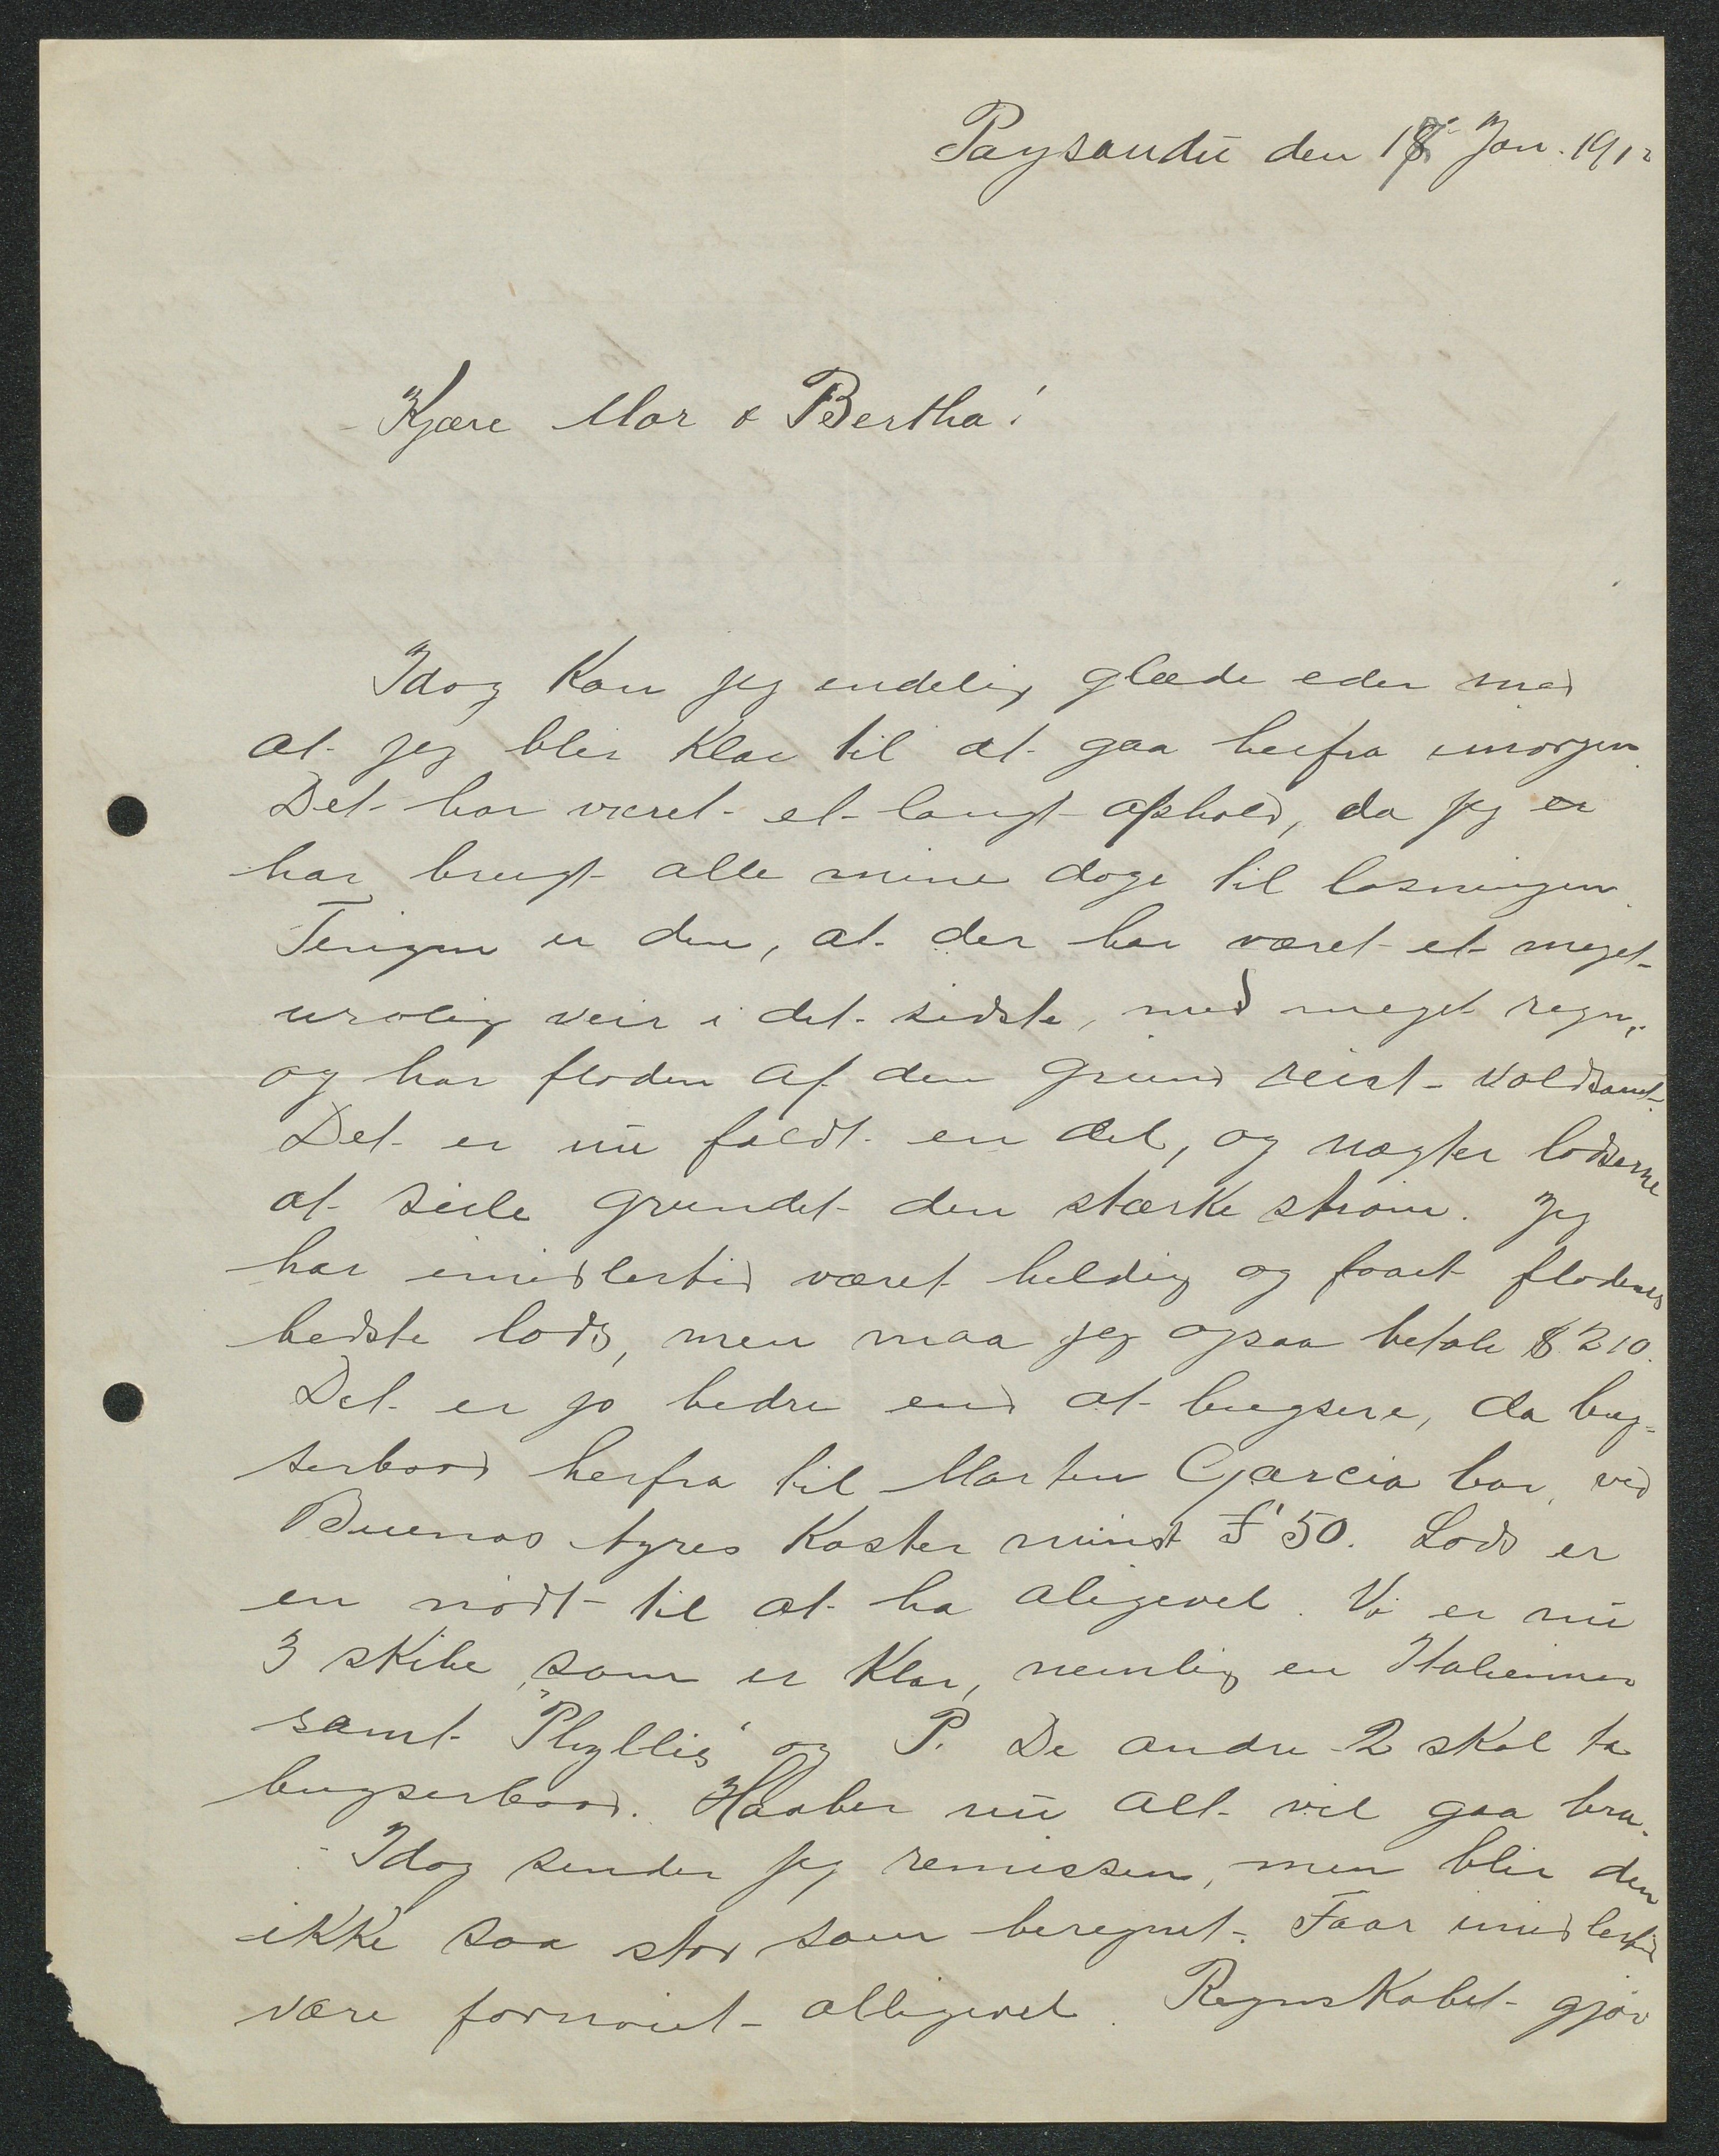 Paysandú den 18 Jan. 1912
Kjære Mor & Bertha!
Idag kan jeg endelig glæde eder med
at jeg blir klar til at gaa herfra imorgen.
Det har været et langt ophold, da jeg er
har brugt alle mine dage til losningen.
Tingen er den, at der har været et meget
urolig veir i det sidste, med meget regn,
og har floden af den grund reist voldsomt.
Det er nu faldt en del, og nægter lodserne
at seile grundet den stærke strøm. Jeg
har imidlertid været heldig og faaet flodens
bedste lods, men maa jeg ogsaa betale $ 210.
Det er jo bedre end at bugsere, da bug-
serbaad herfra til Martin Garcia bar, ved
Buenos Ayres koster minst £ 50. Lods er
en nødt til at ha aligevel. Vi er nu
3 skibe, som er klar, nemlig en Italiener
samt "Phyllis" og P. De andre 2 skal ta
bugserbaad. Haaber nu alt vil gaa bra.
Idag sender jeg remissen, men blir den
ikke saa stor som beregnet. Faar imidlertid
være fornøiet alligevel. Regnskabet gjør